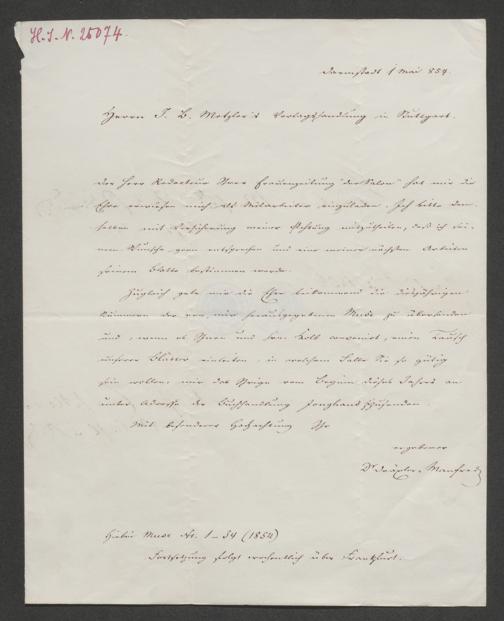 H.I.N. 25074.
Darmstadt 1 Mai 854.
Herrn J. B. Metzler's Verlagshandlung in Stuttgart.
Der Herr Redacteur Ihrer Frauenzeitung "der Salon" hat mir die
Ehre erwiesen mich als Mitarbeiter einzuladen. Ich bitte dem-
selben mit Versicherung meiner Achtung mitzutheilen, daß ich sei-
nem Wunsche gern entsprechen und eine meiner nächsten Arbeiten
seinem Blatte bestimmen werde.
Zugleich gebe mir die Ehre beikommend die diesjährigen
Nummern der von mir herausgegebenen Muse zu übersenden
und, wenn es Ihnen und Hrn. Kolb convenirt, einen Tausch
unserer Blätter einleiten, in welchem Falle Sie so gütig
sein wollen, mir das Ihrige vom Beginn dieses Jahres an
unter Adresse der Buchhandlung Jonghaus zuzusenden.
Mit besonderer Hochachtung Ihr
ergebener
Dr Dräxler-Manfred
Hiebei Muse Nr. 1-54 (1854)
Fortsetzung folgt wochentlich über Frankfurt.